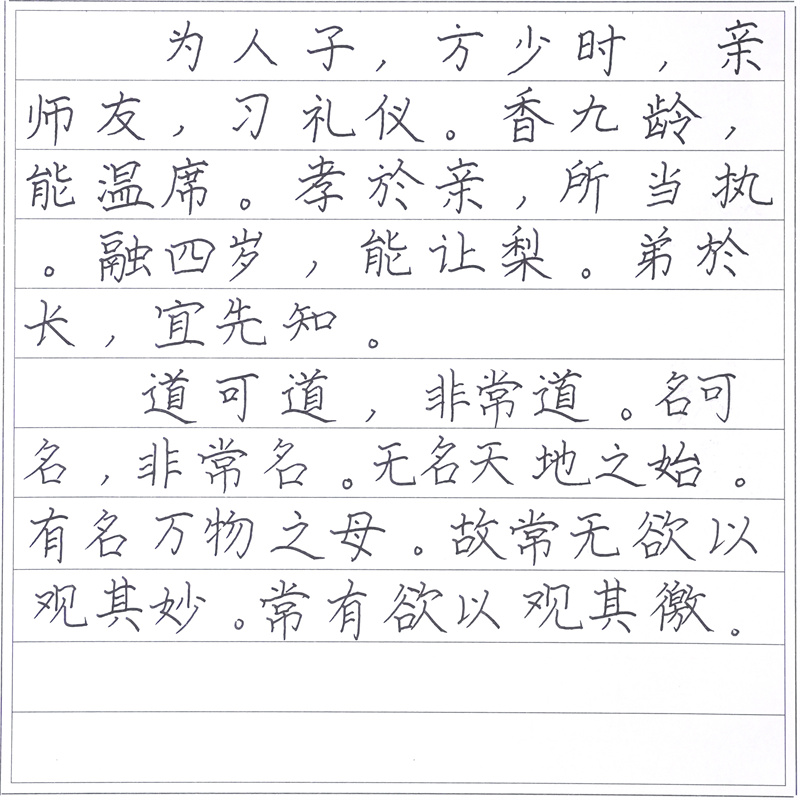 为人子，方少时，亲
师友，习礼仪。香九龄，
能温席。孝於亲，所当执
。融四岁，能让梨。弟於
长，宜先知。
道可道，非常道。名可
名，非常名。无名天地之始。
有名万物之母。故常无欲以
观其妙。常有欲以观其徼。